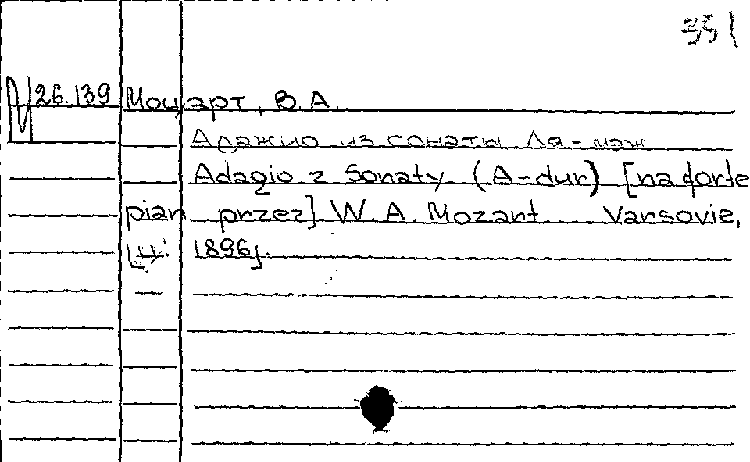 351
26.139 Моцарт, В.А.
Адажио из сонаты Ля-маж
Adagio z Sonaty (A-dur) [na forte
pian przez] W. A. Mozart. Varsovie,
[ц. 1896].